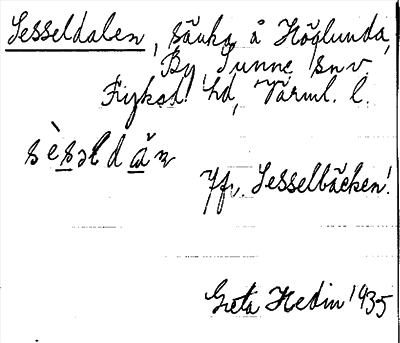 Sesseldalen, sänka å Höglunda,
By, Sunne snv,
Fryksd. hd, Värml. l.
sèsəldän
Jfr. Sesselbäcken!
Greta Hedin 1935